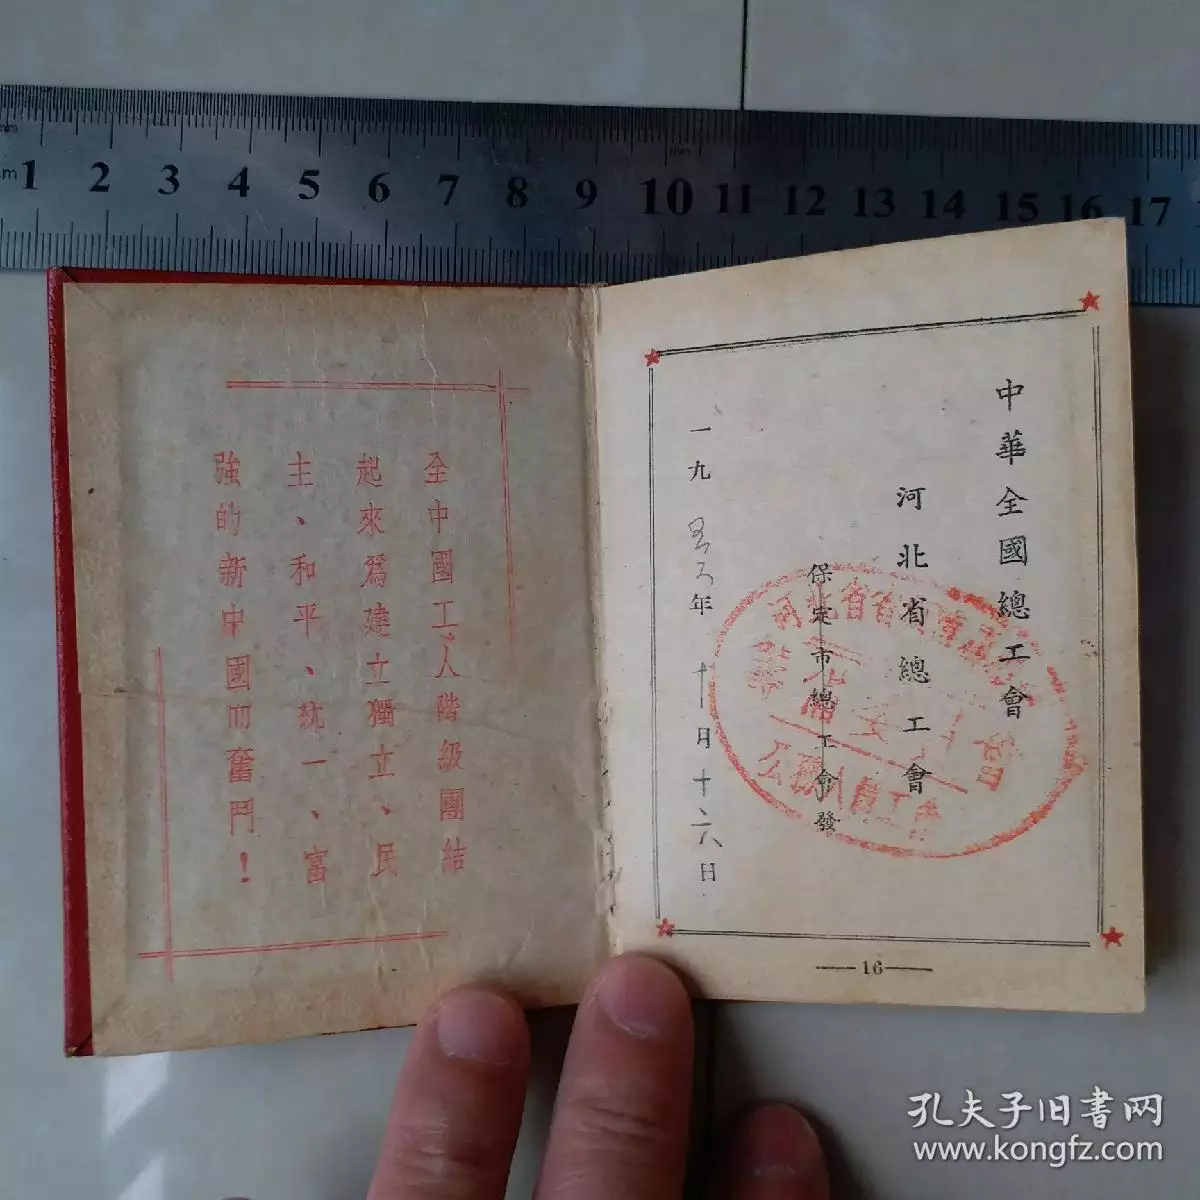 mm
cm 1 2 3 4 5 6 7 8 9 10 11 12 13 14 15 16 17
mm
全中國工人階級團結
起來爲建立獨立、民
主、和平、統一、富
強的新中國而奮鬥！
中華全國總工會
河北省總工會
保定市總工會發
一九五六年十月十六日
公務人員工會
—16—
孔夫子旧書网
www.kongfz.com